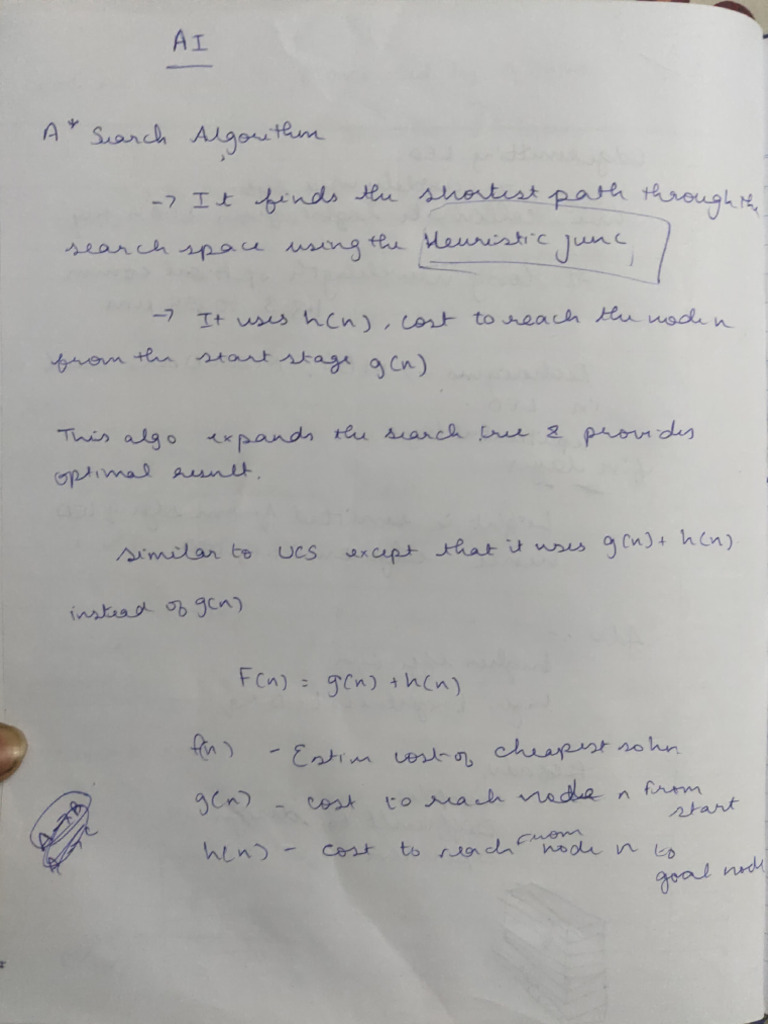 AI
A* Search Algorithm
→ It finds the shortest path through the
search space using the Heuristic func,
→ It uses h(n), cost to reach the node n
from the start stage g(n)
This algo expands the search tree & provides
optimal result.
Similar to UCS except that it uses g(n) + h(n)
instead of g(n)
F(n) = g(n) + h(n)
f(n) - Estim cost of cheapest soln
g(n) - cost to reach node n from
start
h(n) - cost to reach from node n to
goal node